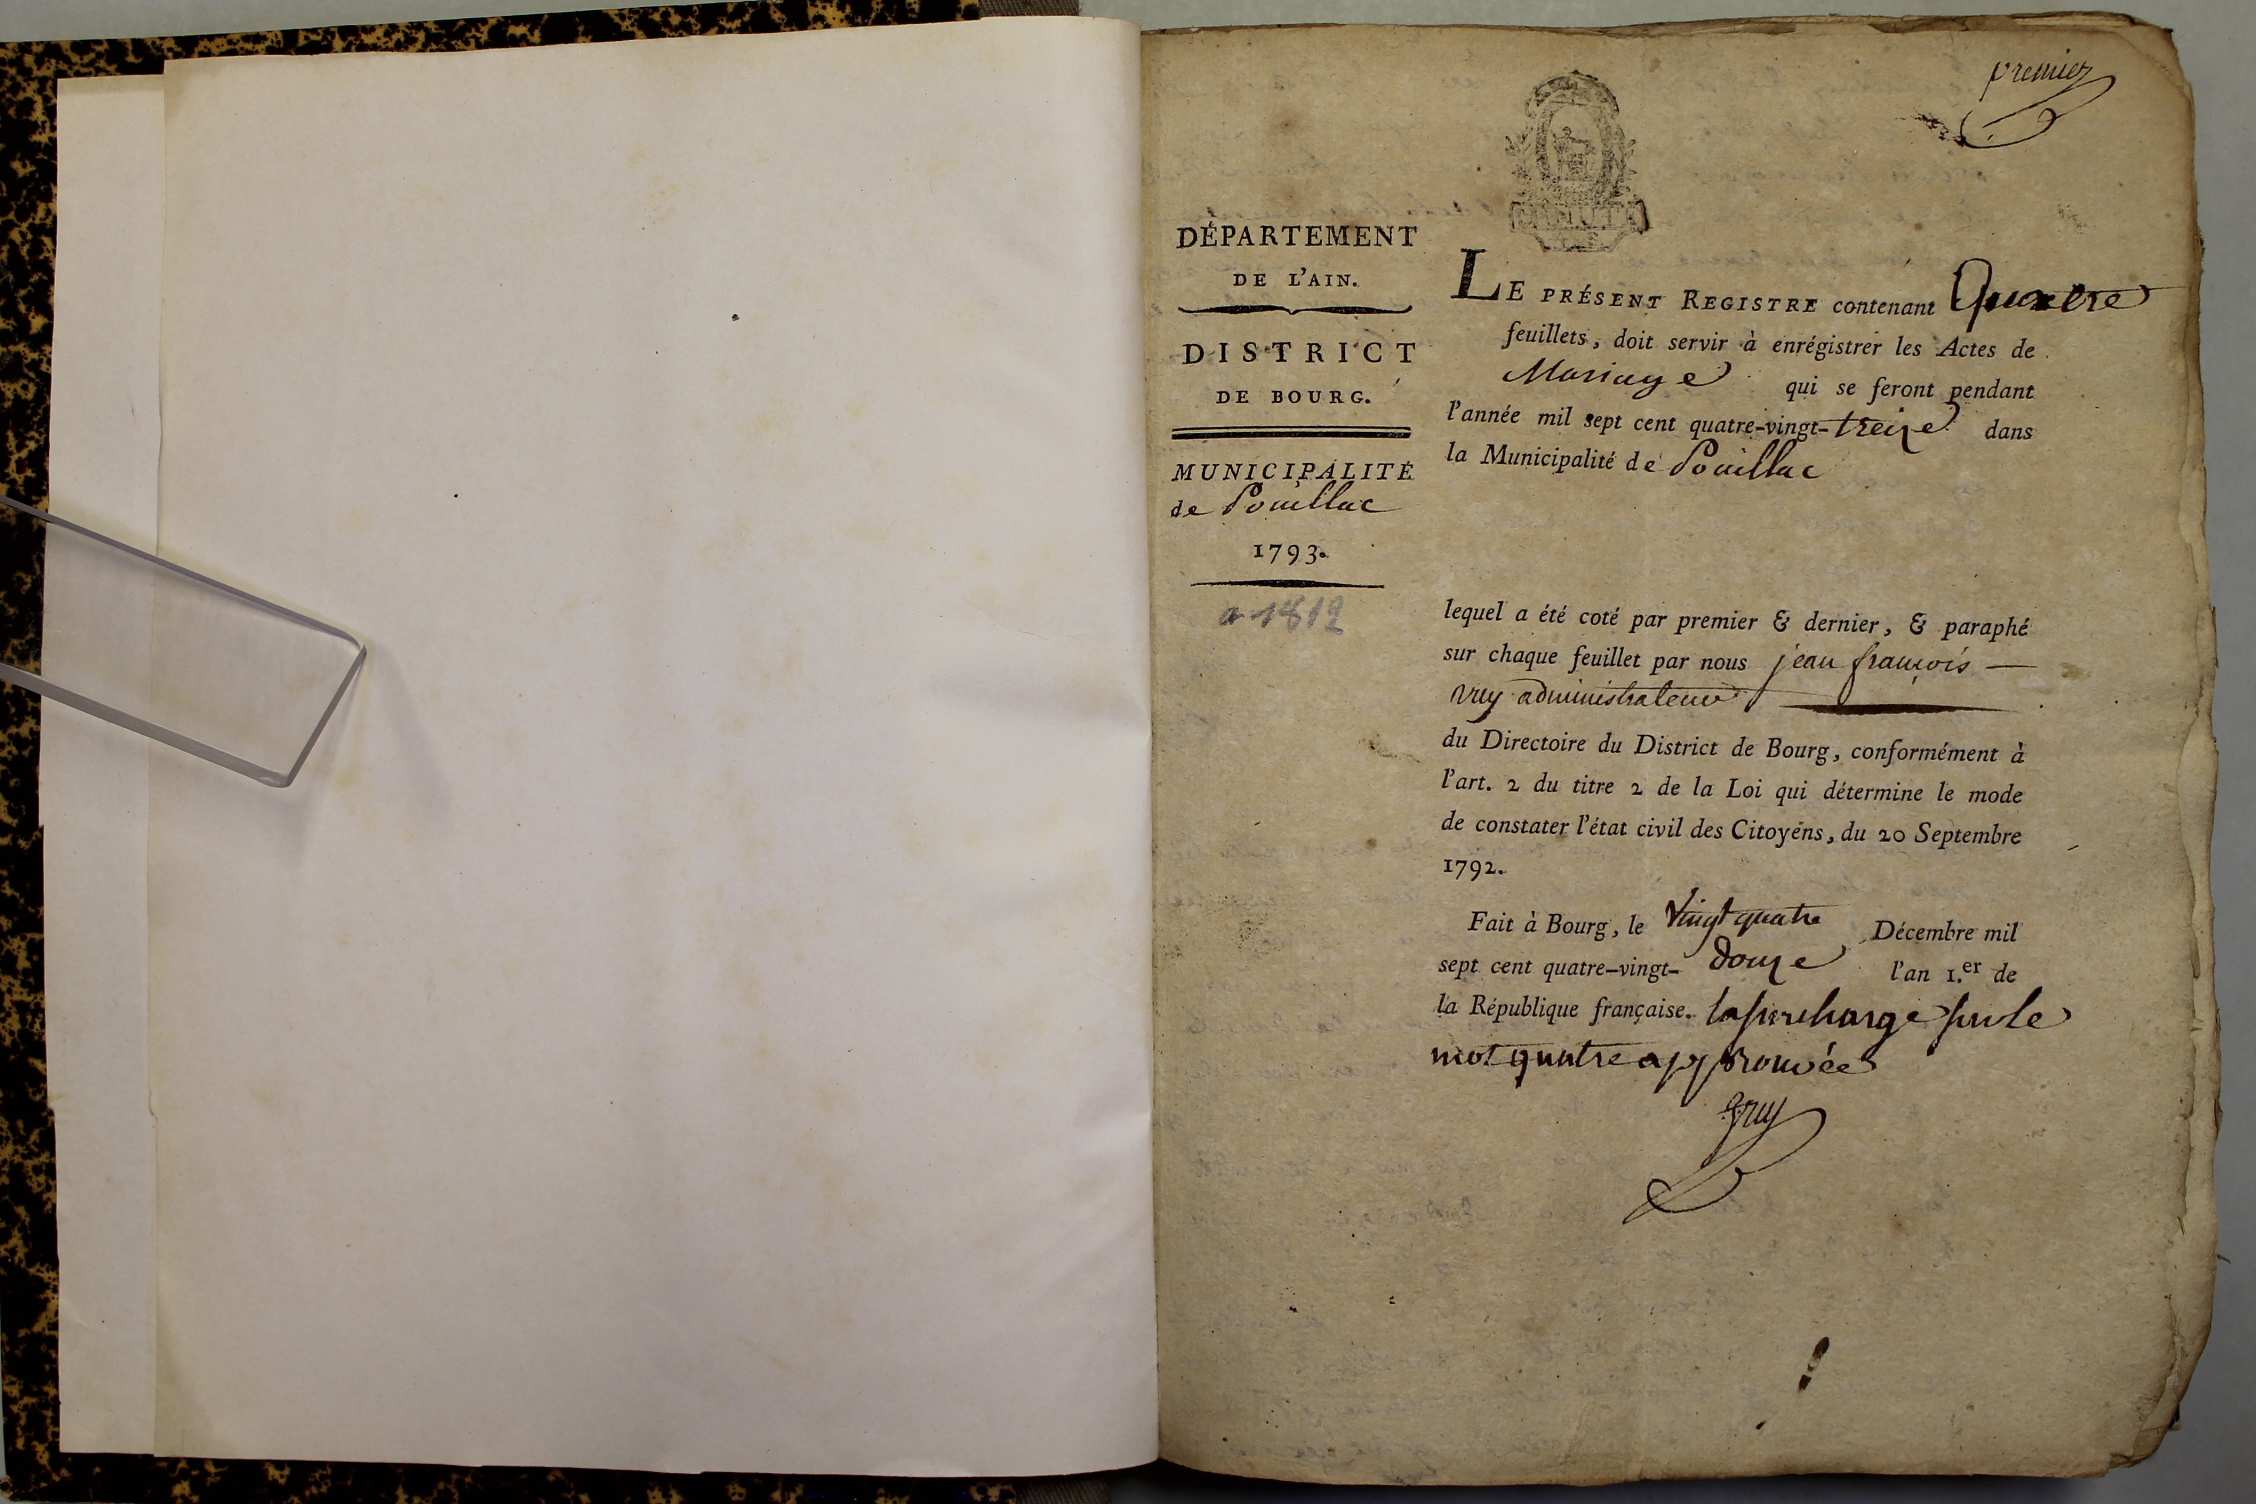 premier
DÉPARTEMENT
DE L'AIN.
DISTRICT
DE BOURG.
MUNICIPALITÉ
de Pouillac
1793.
a 1812
LE PRÉSENT REGISTRE contenant Quatre
feuillets, doit servir à enrégistrer les Actes de
Mariage qui se feront pendant
l'année mil sept cent quatre-vingt-treize dans
la Municipalité de Pouillac
lequel a été coté par premier & dernier, & paraphé
sur chaque feuillet par nous jean françois
administrateur
du Directoire du District de Bourg, conformément à
l'art. 2 du titre 2 de la Loi qui détermine le mode
de constater l'état civil des Citoyens, du 20 Septembre
1792.
Fait à Bourg, le vingt quatre Décembre mil
sept cent quatre-vingt-douze l'an 1.er de
la République française. la surcharge sur le
mot quatre approuvée